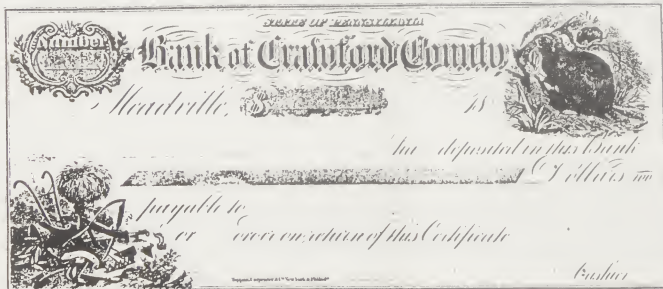 STATE OF PENNSYLVANIA
Number
Bank of Crawford County
Meadville, $ 18
has deposited in this Bank
Dollars
payable to
or order on return of this Certificate
Cashier